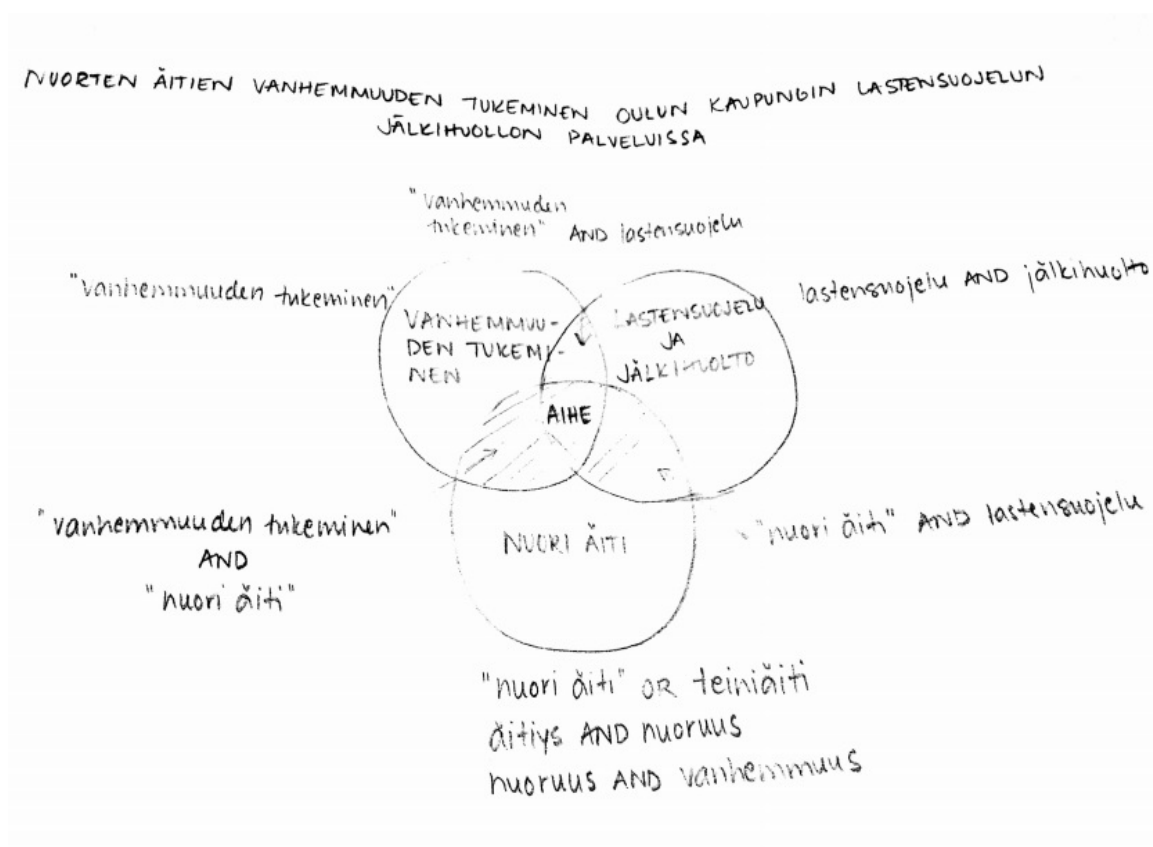 NUORTEN ÄITIEN VANHEMMUUDEN TUKEMINEN OULUN KAUPUNGIN LASTENSUOJELUN
JÄLKIHUOLLON PALVELUISSA
"vanhemmuden
tukeminen" AND lastensuojelu
"vanhemmuuden tukeminen"
lastensuojelu AND jälkihuolto
VANHEMMUU-
DEN TUKEMI-
NEN
LASTENSUOJELU
JA
JÄLKIHUOLTO
AIHE
NUORI ÄITI
"vanhemmuuden tukeminen"
AND
"nuori äiti"
"nuori äiti" AND lastensuojelu
"nuori äiti" OR teiniäiti
äitiys AND nuoruus
nuoruus AND vanhemmuus